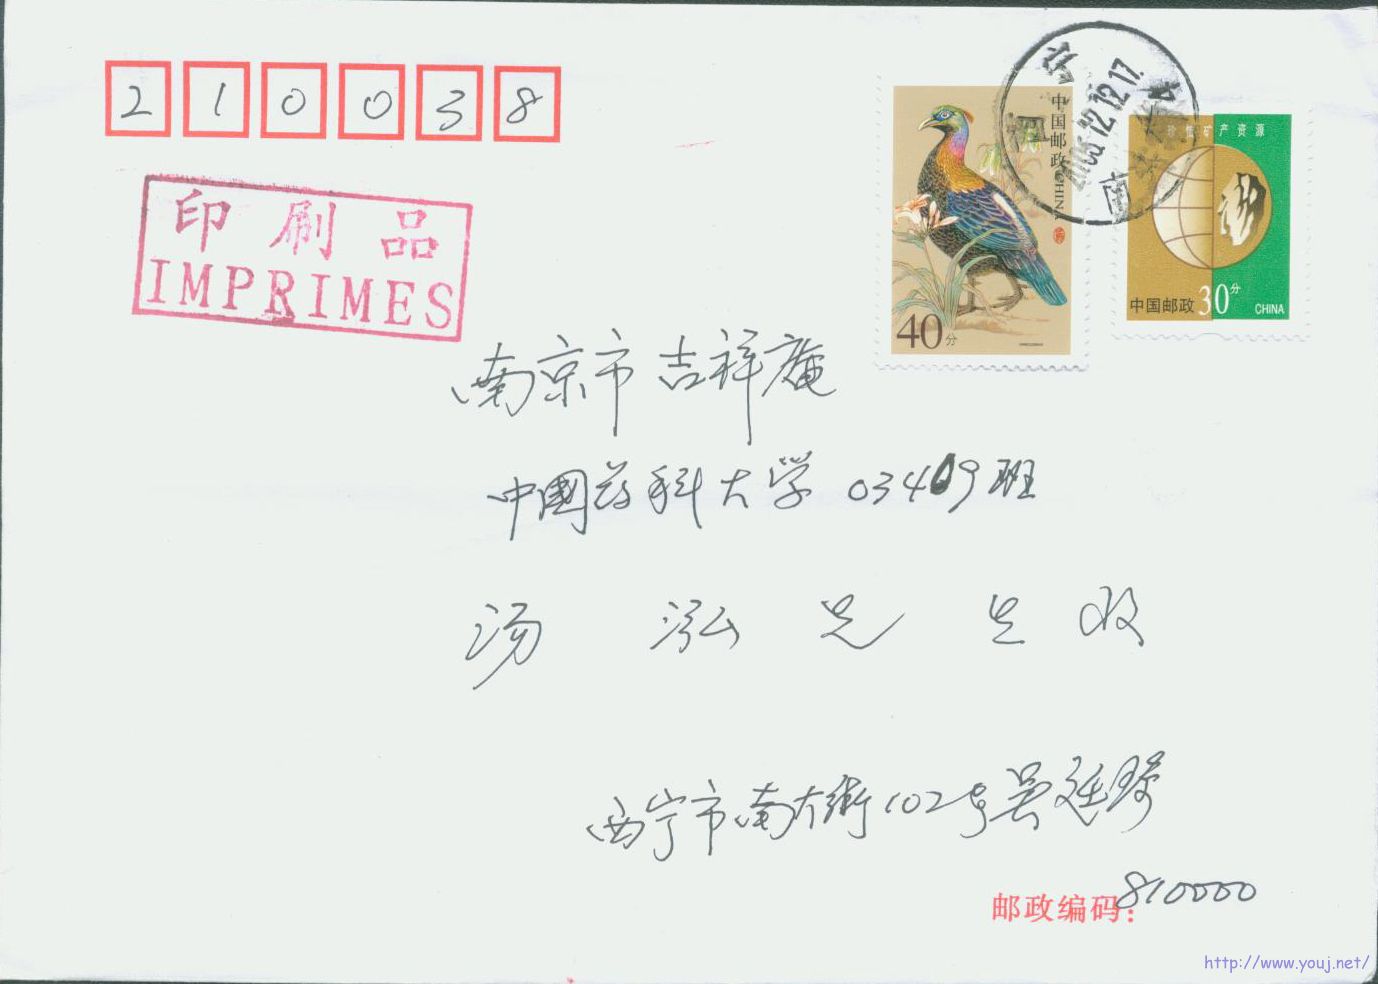 210038
印刷品
IMPRIMES
中国邮政CHINA
40分
珍惜矿产资源
中国邮政 30分 CHINA
2005.12.12.17
南
南京市吉祥庵
中國药科大学03409班
汤泓先生收
西宁市南大街102号吴廷琦
邮政编码：810000
http://www.youj.net/